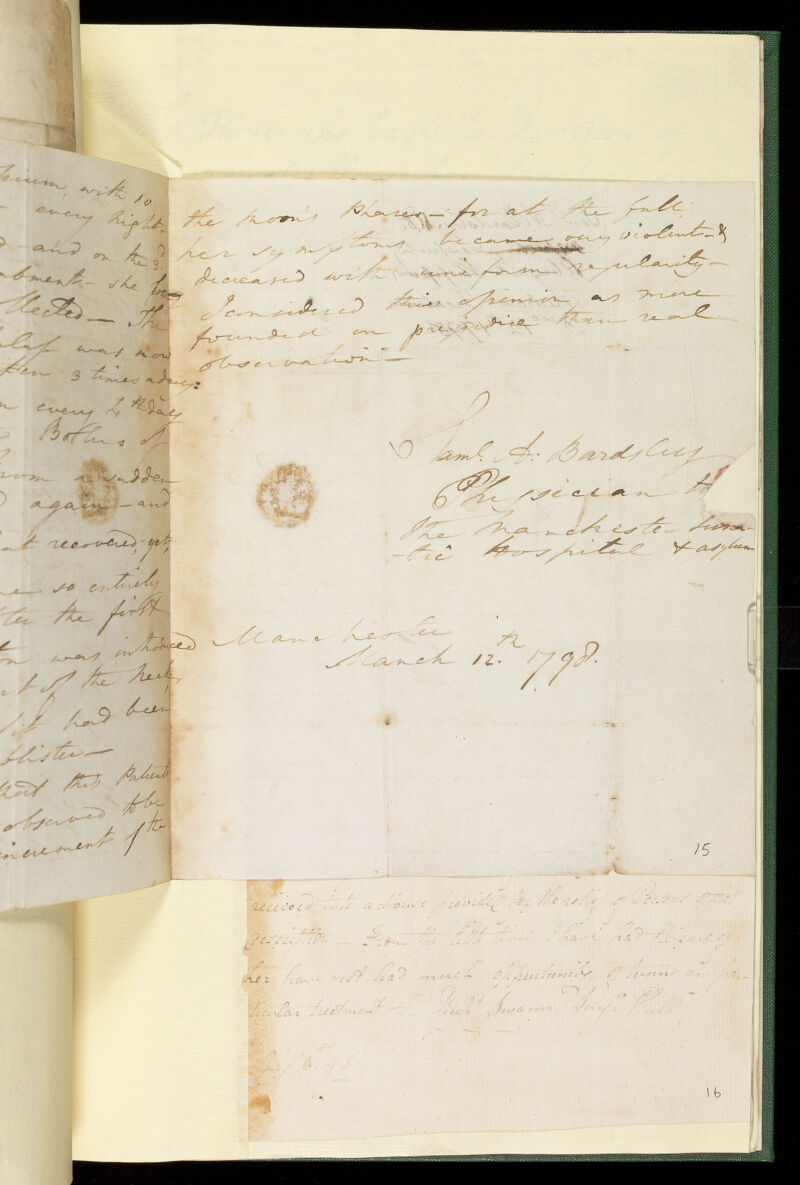 with 10
every night-
and on the 3d
she be=
The
was now
3 times a day:
every 4th day
Bolus of
from a sudden
again - and
recovered; yet,
so entirely
the first
was introduced
of the neck,
had been
blister—
that this Patient
observed to be
increment of the
the moon's phases - for at the full,
her symptoms became very violent - &
decreased with uniform regularity -
I considered this opinion as more
founded on prejudice than real
observation —
Saml. A: Bardsley
Physician to
the Manchester Luna-
-tic Hospital & asylum
Manchester
March 12.th 1798.
15
received into a House provided for the relief of Persons of that
description — From the little time I have had the care of
her have not had much opportunities of trying any par-
ticular treatment — Richd Swann
98
16